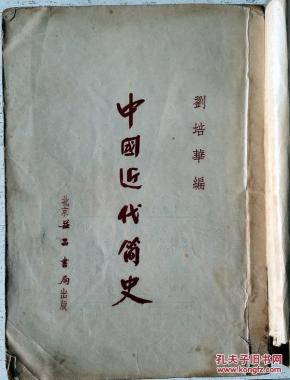 劉培華編
中國近代简史
北京益昌書局出版
孔夫子旧书网